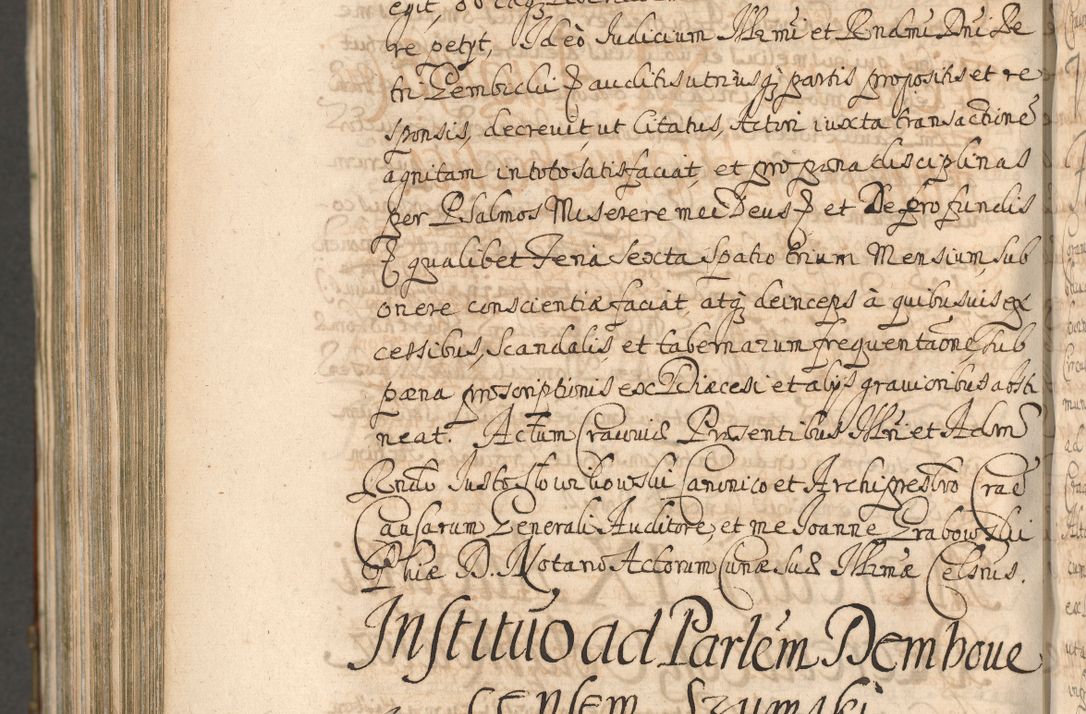 re petyt, Ideò Iudicium Illrmi et Rndmi Dni Pe
tri Gembicki ꝑ auditis utriusqꝫ partis propositis et re
sponsis, decrevit ut Citatus, Actori iuxta transactionē
agnitam in toto satisfaciat, et pro pæna disciplinas
per Psalmos Miserere mei Deus ꝑ et De profundis
ꝑ qualibet Feria Sexta Spatio trium Mensium, sub
onere conscientiæ faciat, atqꝫ deinceps à quibusuis ex
cessibus, Scandalis, et tabernarum frequentaōne, sub
pæna proscriptionis ex Diæcesi et alijs grauioribus absti
neat. Actum Cracouiæ Præsentibus Illri et Adm
Rndo Iusto Słowikowski Canonico et Archipresbro Crac
Causarum Generali Auditore, et me Joanne Grabowski
Phiæ D. Notario Actorum Curiæ Suæ Illrmæ Celsnis.
Institūo ad Parlém Demboue
censem Szumski